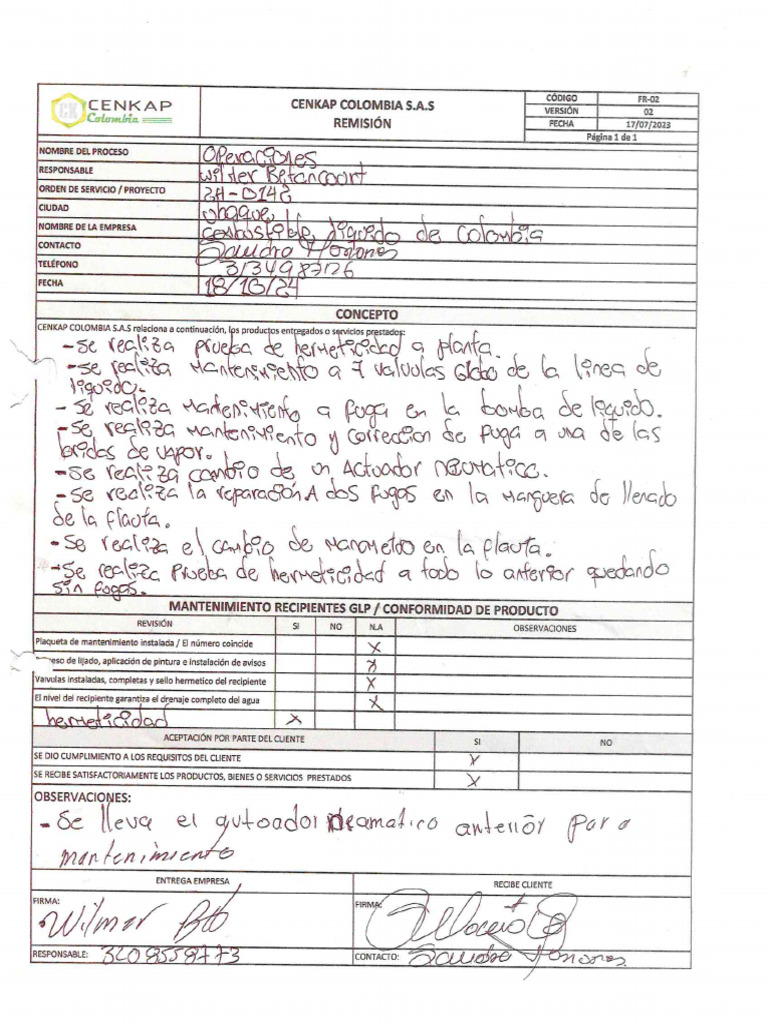 CK CENKAP
Colombia
CENKAP COLOMBIA S.A.S
REMISIÓN
CÓDIGO FR-02
VERSIÓN 02
FECHA 17/07/2023
Página 1 de 1
NOMBRE DEL PROCESO Operaciones
RESPONSABLE Wilder Betancourt
ORDEN DE SERVICIO / PROYECTO ZA-0142
CIUDAD
NOMBRE DE LA EMPRESA Combustible liquido de Colombia
CONTACTO Sandra
TELÉFONO
FECHA 18/10/24
CONCEPTO
CENKAP COLOMBIA S.A.S relaciona a continuación, los productos entregados o servicios prestados:
-Se realiza prueba de hermeticidad a planta.
-Se realiza Mantenimiento a 7 valvulas Globo de la linea de
liquido.
- Se realiza Mantenimiento a fuga en la bomba de liquido.
-Se realiza Mantenimiento y correccion de fuga a una de las
bridas de vapor.
-Se realiza cambio de un Actuador neumatico.
-Se realiza la reparación A dos fugas en la manguera de llenado
de la flauta.
-Se realiza el cambio de Manometro en la flauta.
-Se realiza Prueba de hermeticidad a todo lo anterior quedando
sin fugas.
MANTENIMIENTO RECIPIENTES GLP / CONFORMIDAD DE PRODUCTO
REVISIÓN SI NO N.A OBSERVACIONES
Plaqueta de mantenimiento instalada / El número coincide X
eso de lijado, aplicación de pintura e instalación de avisos X
Valvulas instaladas, completas y sello hermetico del recipiente X
El nivel del recipiente garantiza el drenaje completo del agua X
hermeticidad X
ACEPTACIÓN POR PARTE DEL CLIENTE SI NO
SE DIO CUMPLIMIENTO A LOS REQUISITOS DEL CLIENTE X
SE RECIBE SATISFACTORIAMENTE LOS PRODUCTOS, BIENES O SERVICIOS PRESTADOS X
OBSERVACIONES:
- Se lleva el autoador neamatico anterior para
mantenimiento
ENTREGA EMPRESA RECIBE CLIENTE
FIRMA: Wilmar Btt FIRMA:
RESPONSABLE: 3208558773 CONTACTO: Sandra